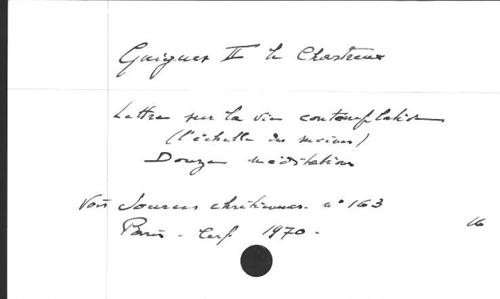 Guigues II le Chartreux
Lettre sur la vie contemplative
(l'échelle des moines)
Douze méditations
Voir Sources chrétiennes n° 163
Paris - Cerf 1970 -